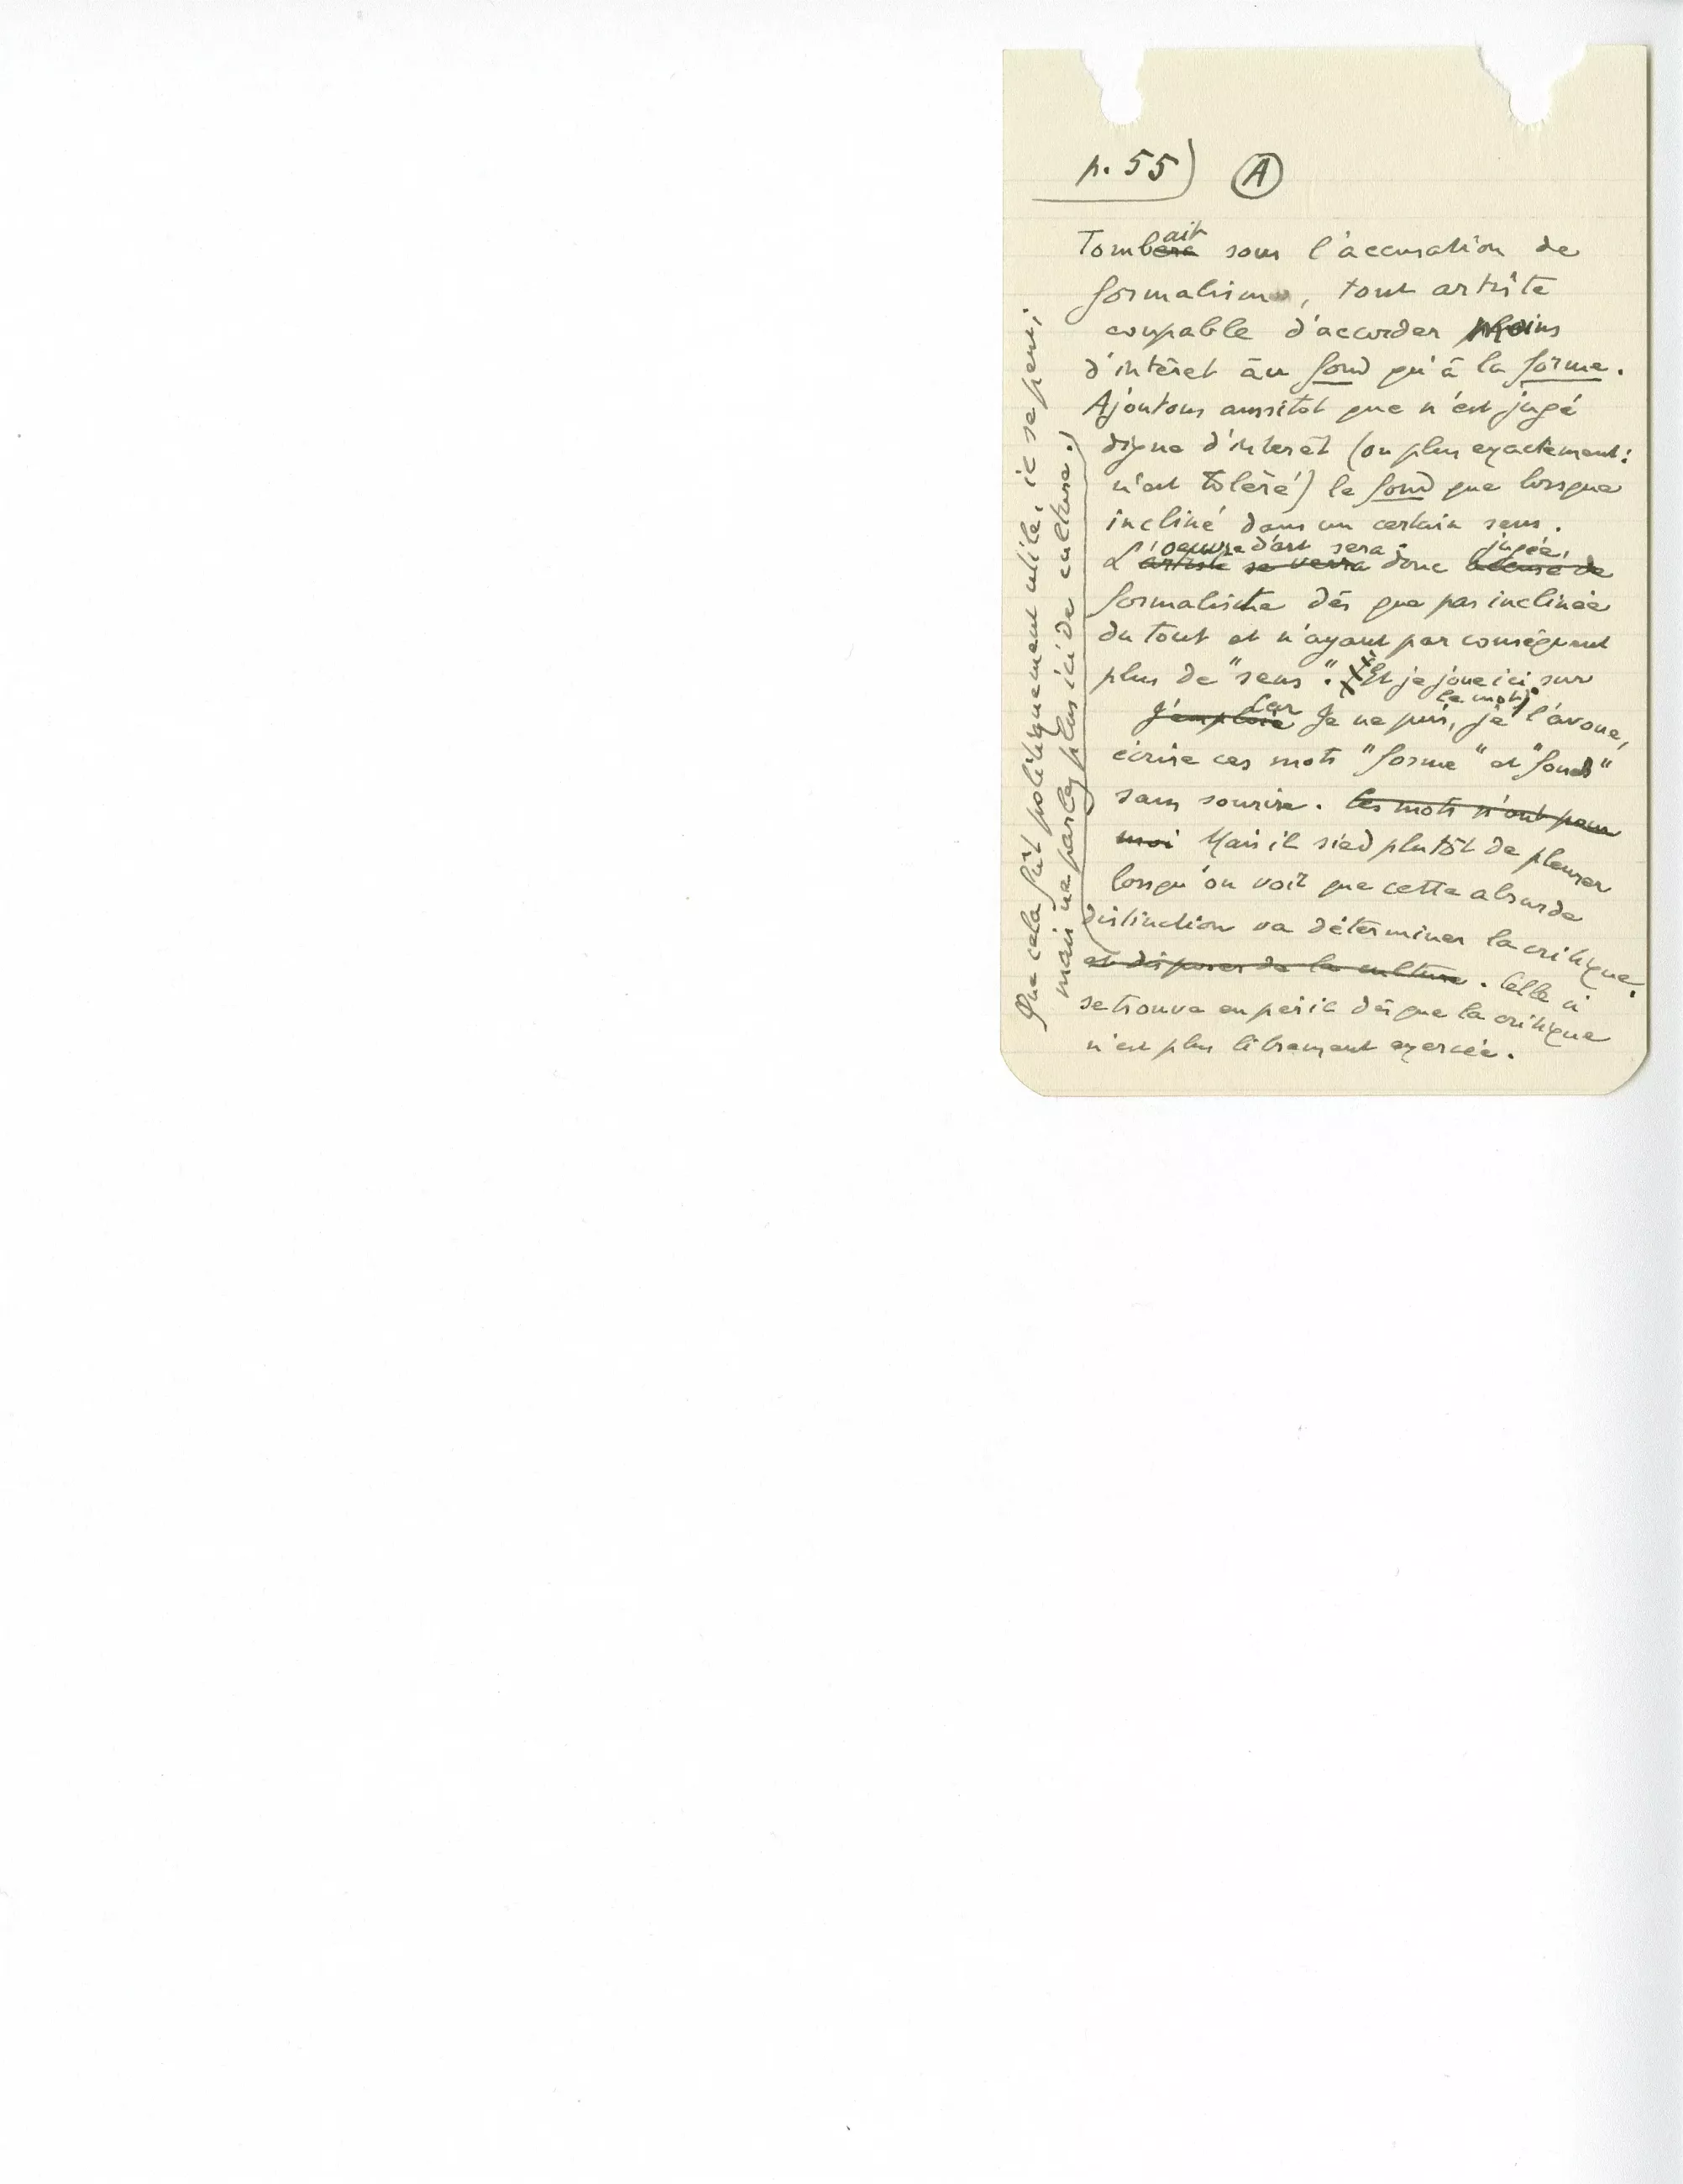 p. 55) A
Tombera ait sous l'accusation de
formalisme, tout artiste
coupable d'accorder moins
d'intérêt au fond qu'à la forme.
Ajoutons aussitôt que n'est jugé
digne d'intérêt (ou plus exactement:
n'est toléré) le fond que lorsque
incliné dans un certain sens.
oeuvre d'art sera jugée,
L'artiste se verra donc accusé de
formaliste dès que pas inclinée
du tout et n'ayant par conséquent
plus de "sens". Et je joue ici sur
le mot.
J'emploie Car Je ne puis, je l'avoue,
écrire ces mots "forme" et "fond"
sans sourire. Ces mots n'ont pour
moi Mais il sied plutôt de pleurer
lorsqu'on voit que cette absurde
distinction va déterminer la critique.
et disposer de la culture. Celle ci
se trouve en péril dès que la critique
n'est plus librement exercée.
Que cela fût politiquement utile, il se peut;
mais ne parlez plus ici de culture.)